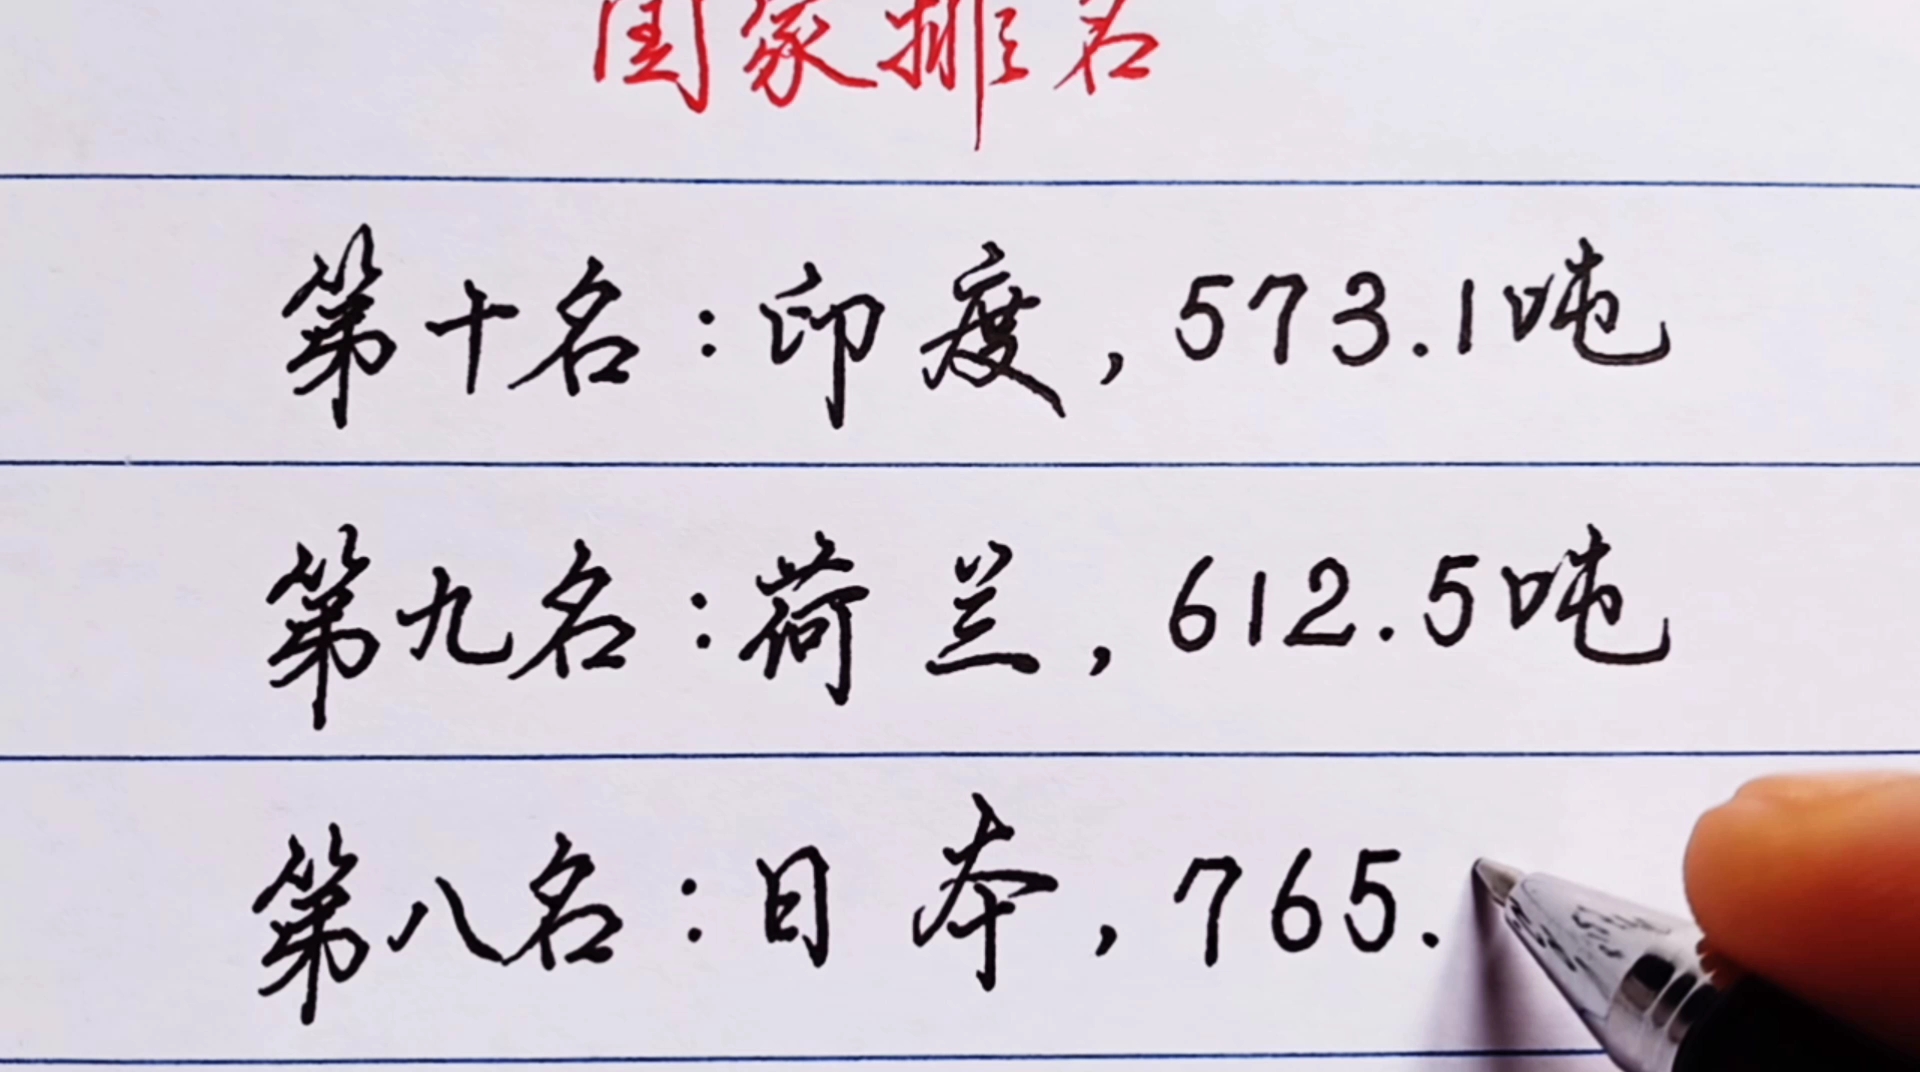 国家排名
第十名:印度,573.1吨
第九名:荷兰,612.5吨
第八名:日本,765.